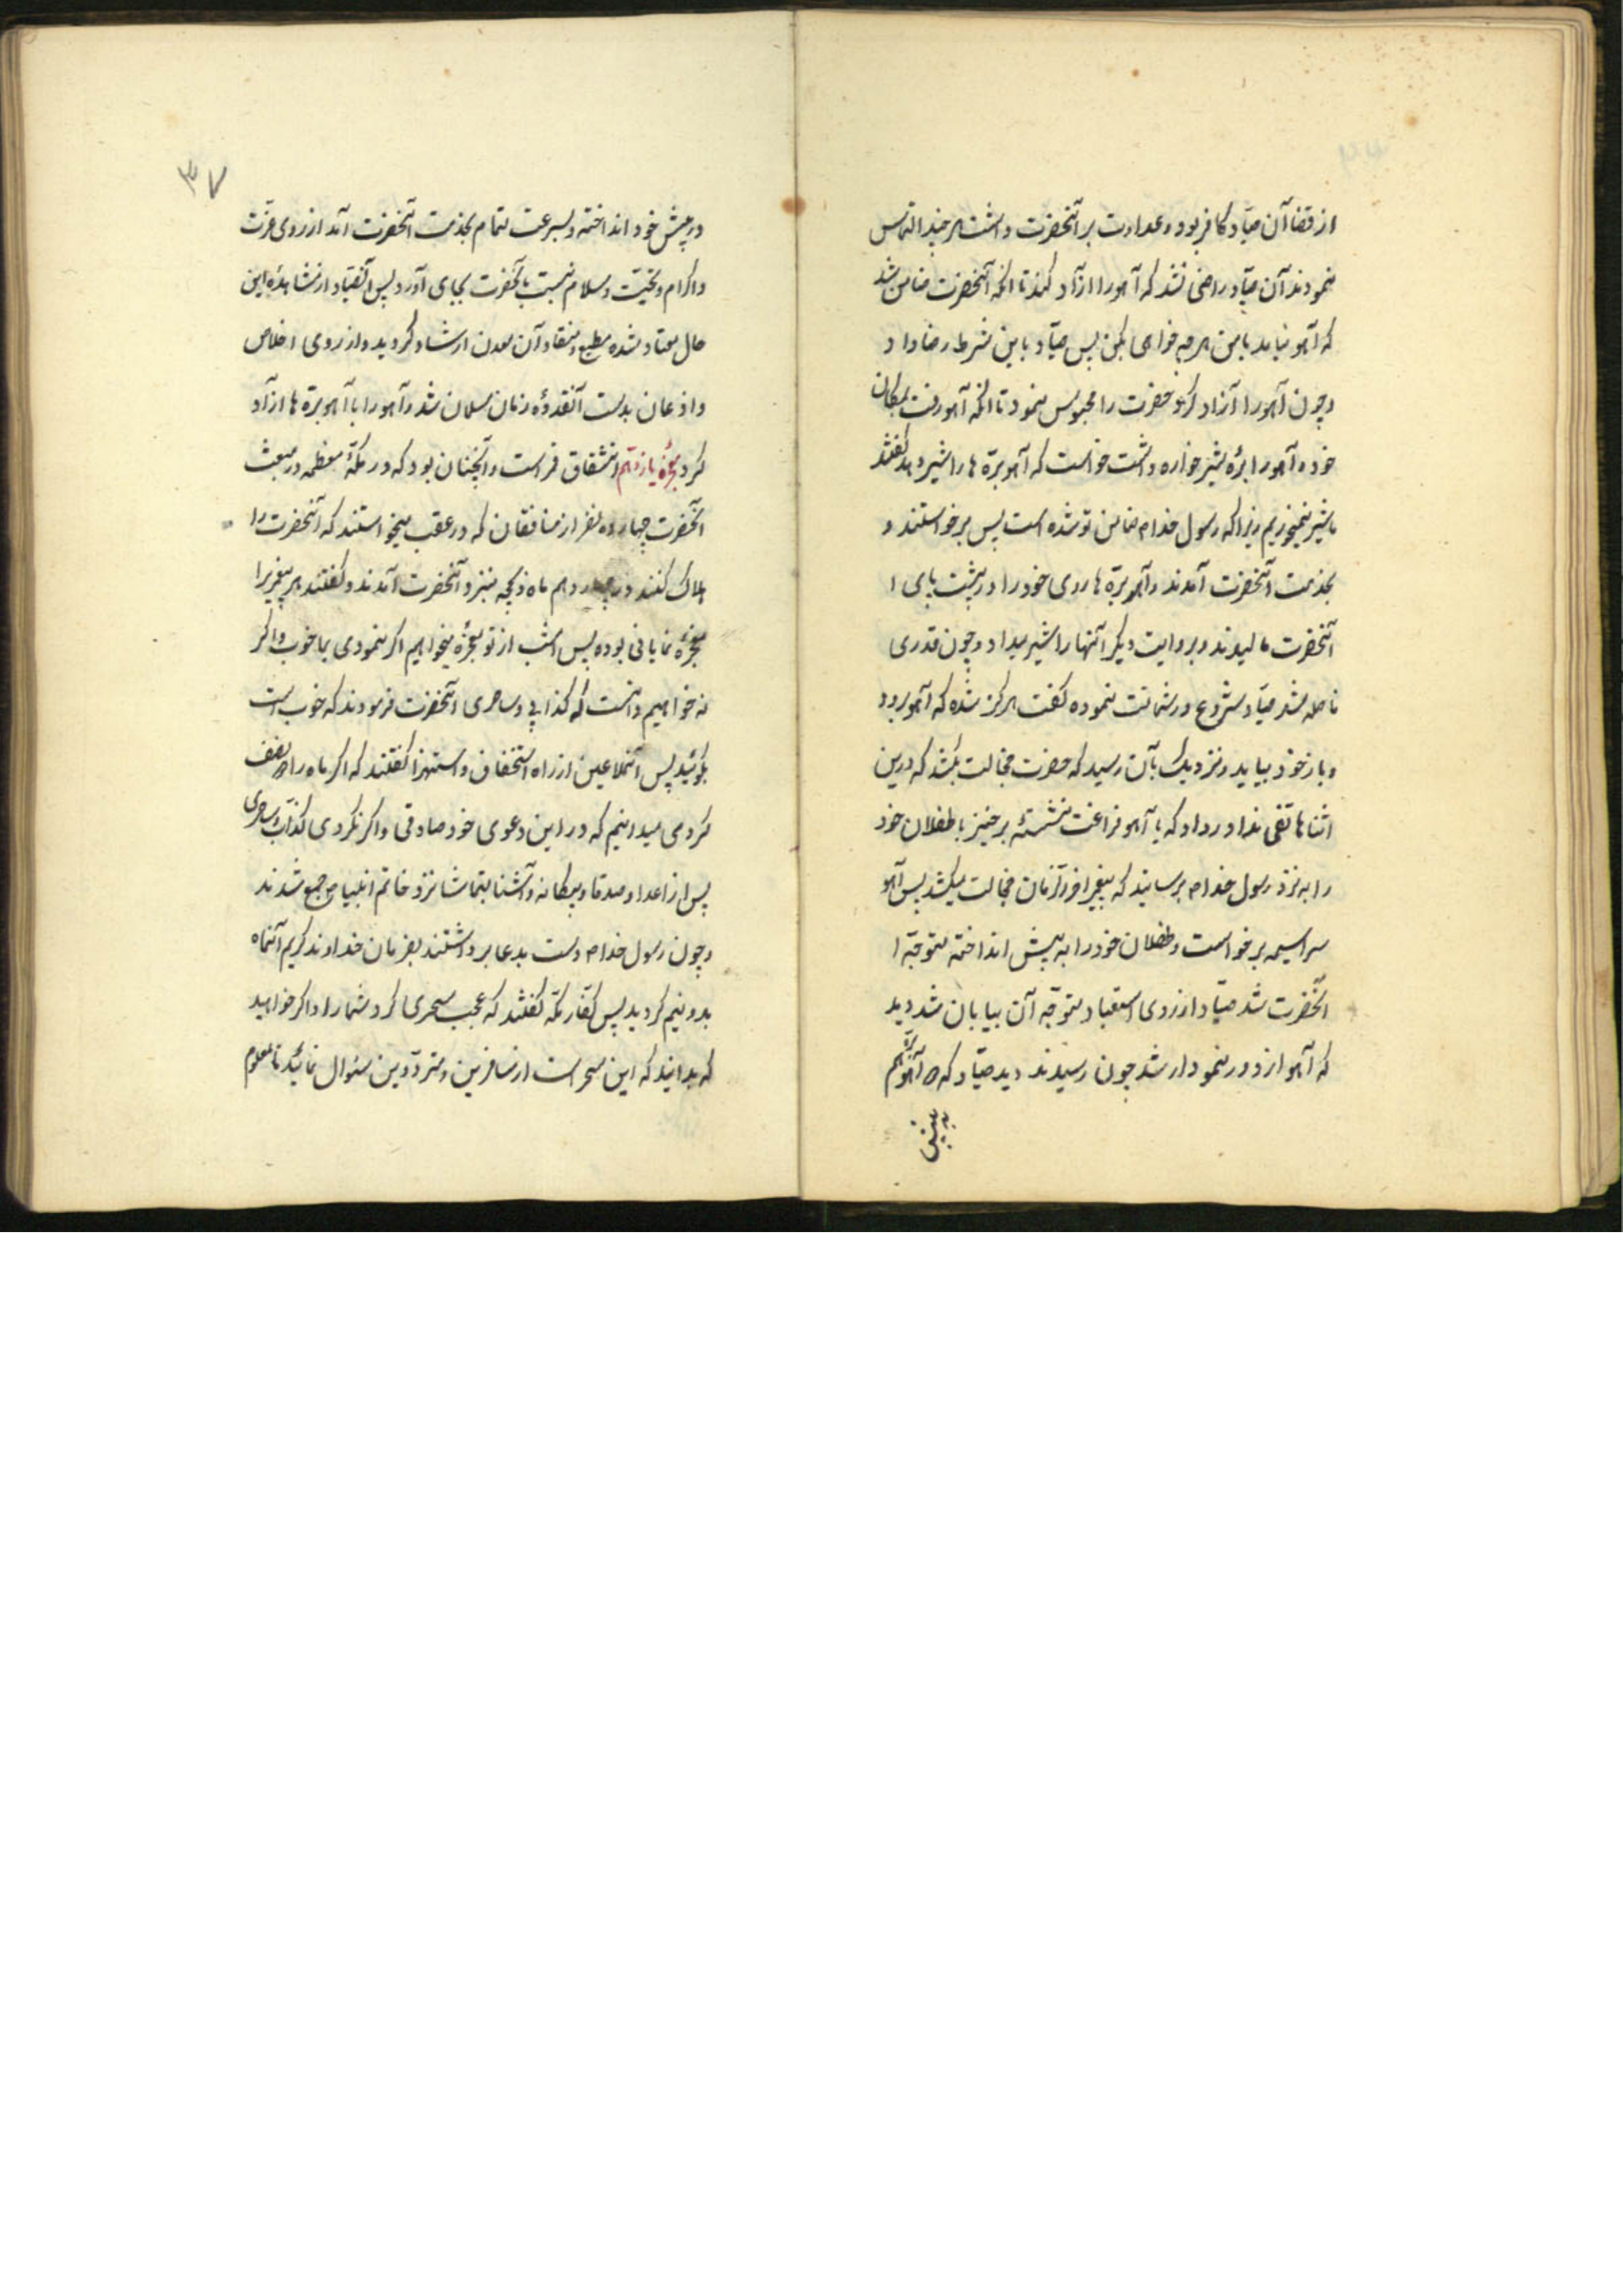 از قضا آن صیّاد کافر بود و عداوت بر آنحضرت داشت هر چند التماس
نمودند آن صیّاد راضی نشد که آهو را ازاد کند تا انکه آنحضرت ضامن شد
که آهو نیاید با من هر چه خواهی بکن پس صیّاد باین شرط رضا داد
و چون آهو را آزاد کرد حضرت را محبوس نمود تا انکه آهو رفت بمکان
خود و آهو را برهٔ شیر خواره داشت خواست که آهو برّه ها را شیر دهد گفتند
ما شیر نمیخوریم زیرا که رسول خدا ص ضامن تو شده است پس برخواستند و
بخدمت آنحضرت آمدند و آهو برّه ها روی خود را در پشت پای ا
آنحضرت مالیدند و بروایت دیکر آنها را شیر میداد و چون قدری
فاصله شد صیّاد شروع در شماتت نموده کفت هرکز شده که آهو برود
و باز خود بیاید و نزدیک بآن رسید که حضرت خجالت بکشد که درین
اثنا هاتفی ندا در داد که یا آهو فراغت نشستهٔ برخیز با طفلان خود
را به نزد رسول خدا ص برسانید که پیغمبر اخر الزمان خجالت میکشد پس آهو
سراسیمه برخواست و طفلان خود را به پیش انداخته متوجّه ا
آنحضرت شد صیّاد از روی استبعاد متوجّه آن بیابان شد دید
که آهو از دور نمودار شد چون رسیدند دید صیّاد که آهو برّه هم
به پیش
۳۷
در پیش خود انداخته و بسرعت تمام بخدمت آنحضرت آمد از روی عزّت
و اکرام و تحیّت و سلام نسبت بآنحضرت بجای آورد پس آنصیّاد از مشاهدهٔ این
حال معتاد شده مطیع و منقاد آن معدن ارشاد کردید و از روی اخلاص
و اذعان بدست آنقدوهٔ زمان مسلمان شد و آهو را با آهو برّه ها ازاد
کرد معجزهٔ یازدهم انشقاق قمر است و آنچنان بود که در مکّهٔ معظمه در مبعث
آنحضرت چهارده نفر از منافقان که در عقب میخواستند که آنحضرت را
هلاک کنند در چهاردهم ماه ذیحجه بنزد آنحضرت آمدند و کفتند هر پیغمبر را
معجزهٔ نمایانی بوده پس امشب از تو معجزه میخواهیم اکر نمودی بما خوب و اکر
نه خواهیم دانست که کذابی و ساحری آنحضرت فرمودند که خوب است
بکوئید پس آنملاعین از راه استخفاف و استهزا کفتند که اکر ماه را دو نصف
کردی میدانیم که در این دعوی خود صادقی و اکر نکردی کذّاب و ساحری
پس از اعدا و صدقا و بیکانه و آشنا بتماشا نزد خاتم انبیا ص جمع شدند
و چون رسول خدا ص دست بدعا برداشتند بفرمان خداوند کریم آنماه
بدو نیم کردید پس کفّار مکّه کفتند که عجب سحری کرد شما را و اکر خواهید
که بدانید که این سحر است از مسافرین و متردّدین سئوال نمائید تا معلوم